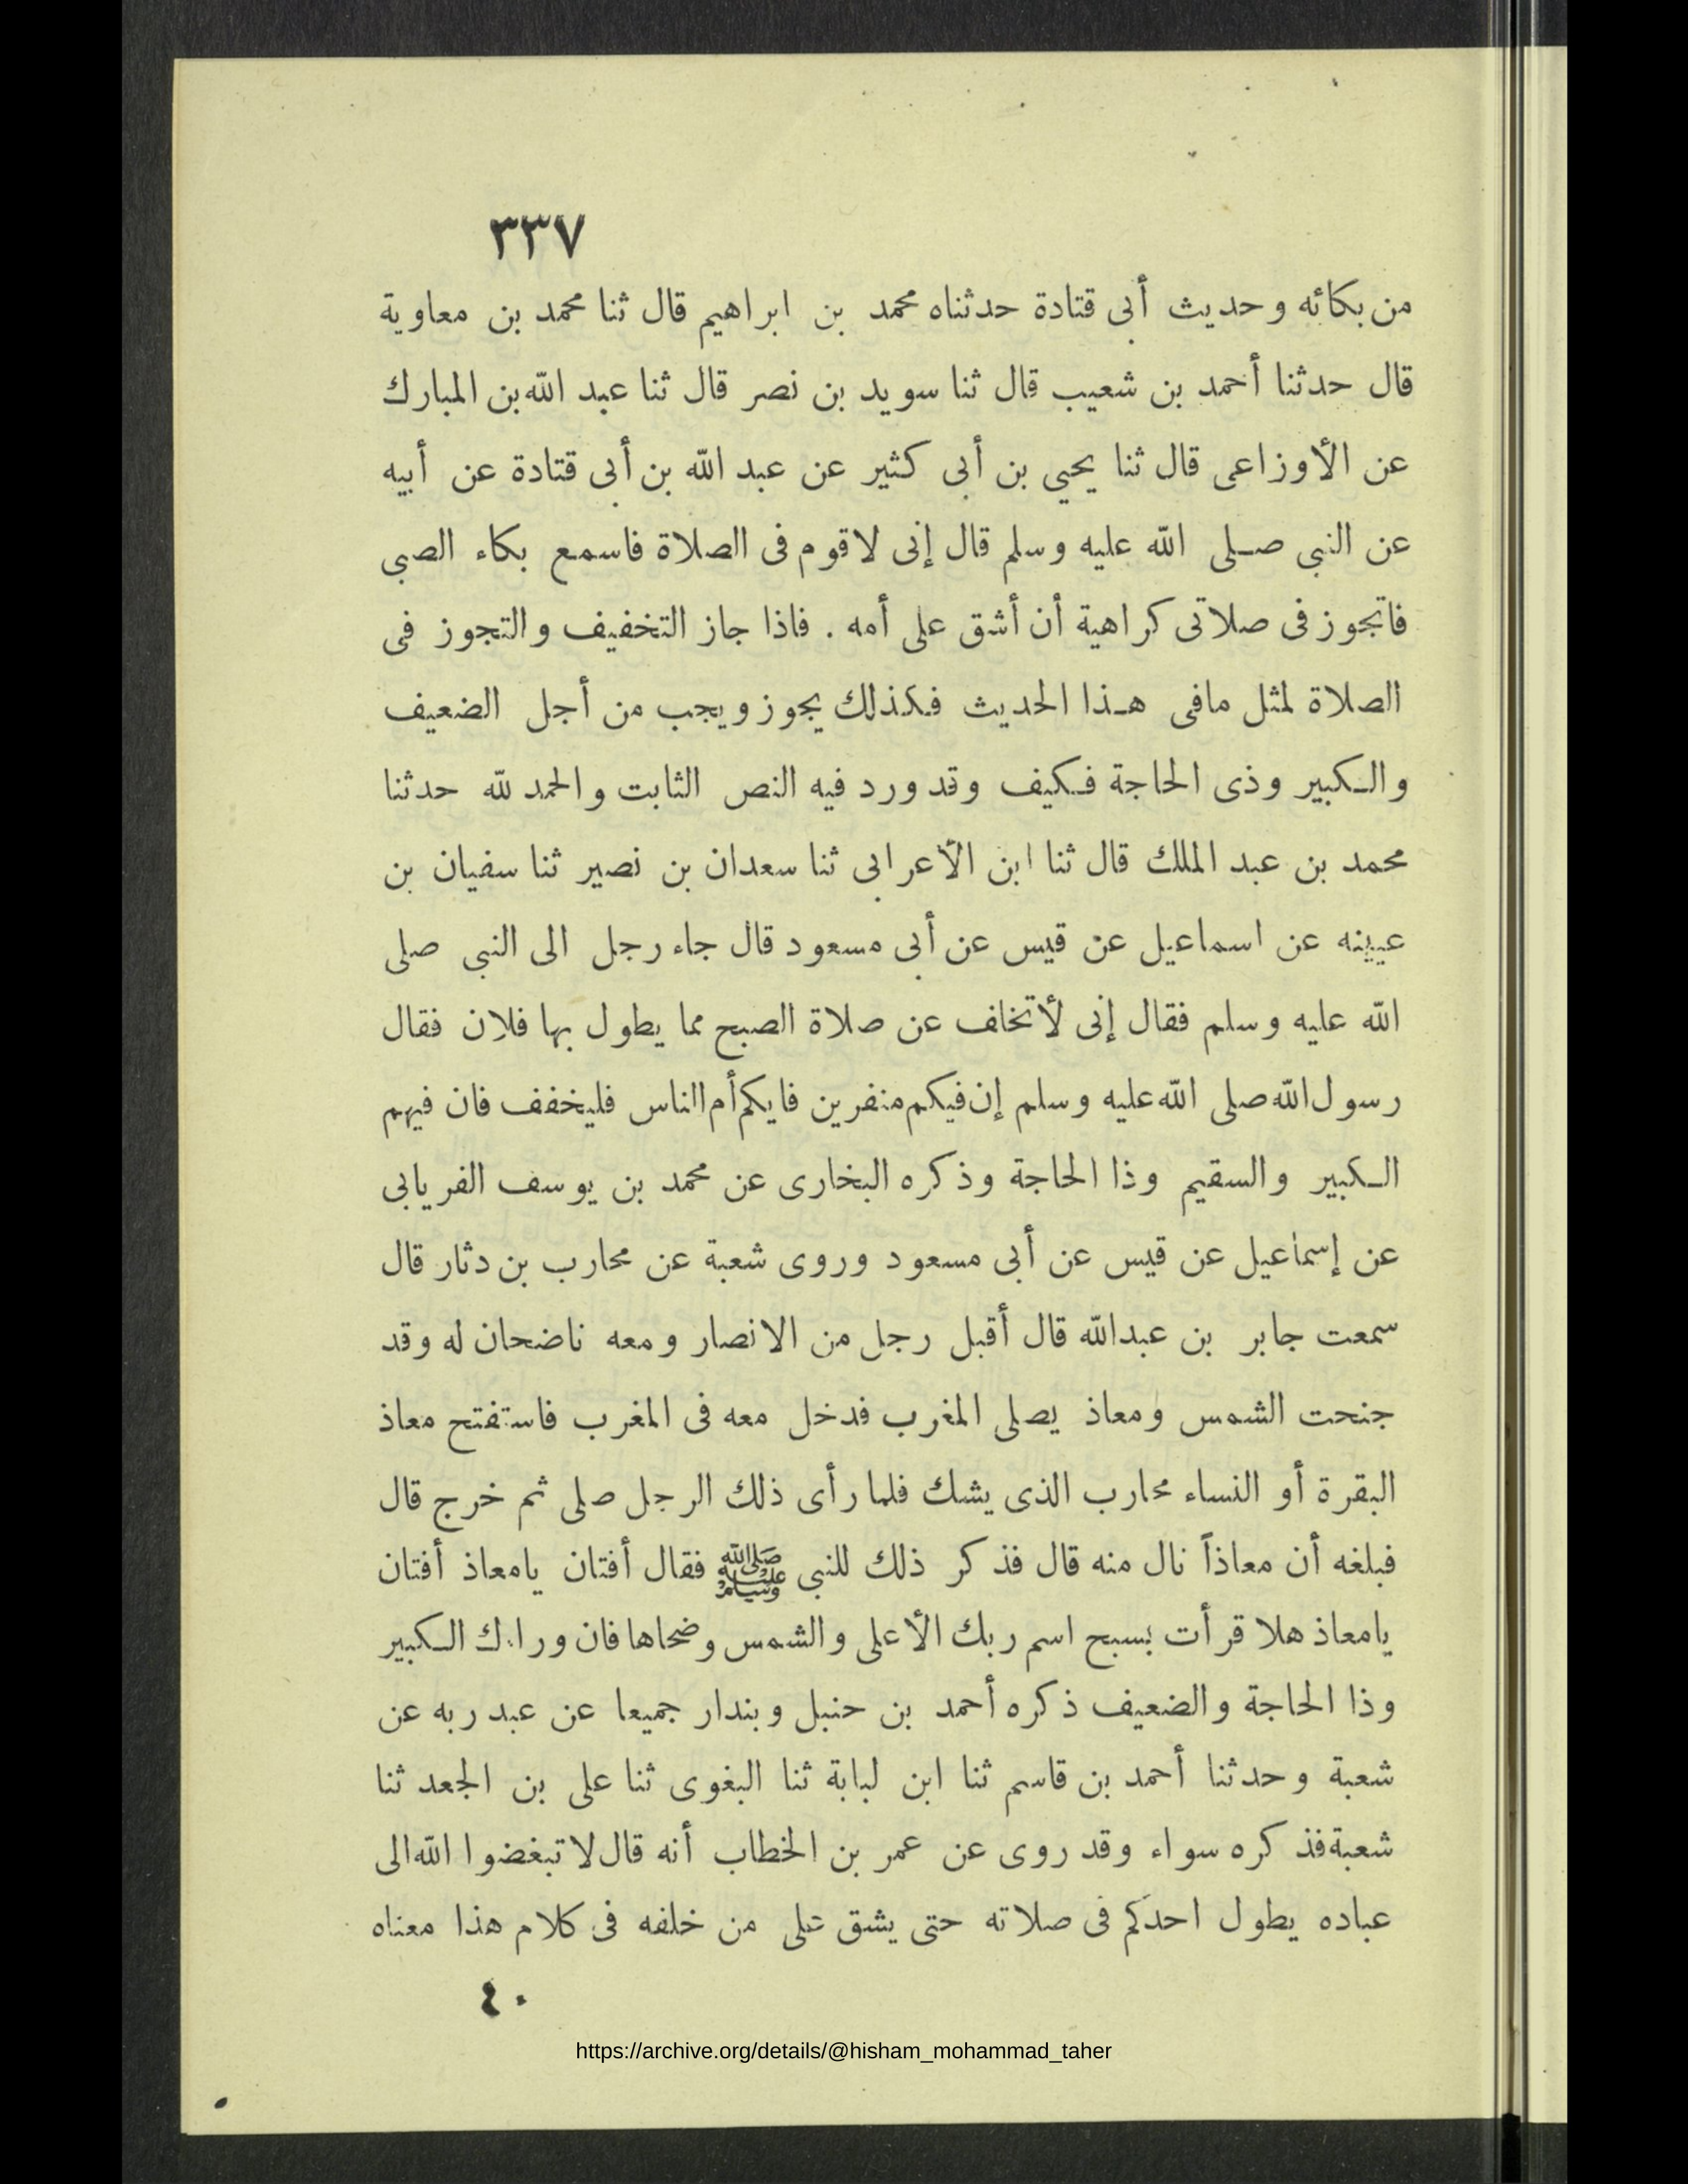 ٣٣٧
من بكائه وحديث أبى قتادة حدثناه محمد بن ابراهيم قال ثنا محمد بن معاوية
قال حدثنا أحمد بن شعيب قال ثنا سويد بن نصر قال ثنا عبد الله بن المبارك
عن الأوزاعى قال ثنا يحيي بن أبى كثير عن عبد الله بن أبى قتادة عن أبيه
عن النبى صلى الله عليه وسلم قال إنى لاقوم فى الصلاة فاسمع بكاء الصبى
فاتجوز فى صلاتى كراهية أن أشق على أمه . فاذا جاز التخفيف والتجوز فى
الصلاة لمثل مافى هذا الحديث فكذلك يجوز ويجب من أجل الضعيف
والكبير وذى الحاجة فكيف وقد ورد فيه النص الثابت والحمد لله حدثنا
محمد بن عبد الملك قال ثنا ابن الأعرابى ثنا سعدان بن نصير ثنا سفيان بن
عيينه عن اسماعيل عن قيس عن أبى مسعود قال جاء رجل الى النبى صلى
الله عليه وسلم فقال إنى لأتخاف عن صلاة الصبح مما يطول بها فلان فقال
رسول الله صلى الله عليه وسلم إن فيكم منفرين فايكم أم الناس فليخفف فان فيهم
الكبير والسقيم وذا الحاجة وذكره البخارى عن محمد بن يوسف الفريابى
عن إسماعيل عن قيس عن أبى مسعود وروى شعبة عن محارب بن دثار قال
سمعت جابر بن عبدالله قال أقبل رجل من الانصار ومعه ناضحان له وقد
جنحت الشمس ومعاذ يصلى المغرب فدخل معه فى المغرب فاستفتح معاذ
البقرة أو النساء محارب الذى يشك فلما رأى ذلك الرجل صلى ثم خرج قال
فبلغه أن معاذاً نال منه قال فذكر ذلك للنبى ﷺ فقال أفتان يامعاذ أفتان
يامعاذ هلا قرأت بسبح اسم ربك الأعلى والشمس وضحاها فان وراءك الكبير
وذا الحاجة والضعيف ذكره أحمد بن حنبل وبندار جميعا عن عبد ربه عن
شعبة وحدثنا أحمد بن قاسم ثنا ابن لبابة ثنا البغوى ثنا على بن الجعد ثنا
شعبة فذكره سواء وقد روى عن عمر بن الخطاب أنه قال لا تبغضوا الله الى
عباده يطول احدكم فى صلاته حتى يشق على من خلفه فى كلام هذا معناه
٤٠
https://archive.org/details/@hisham_mohammad_taher